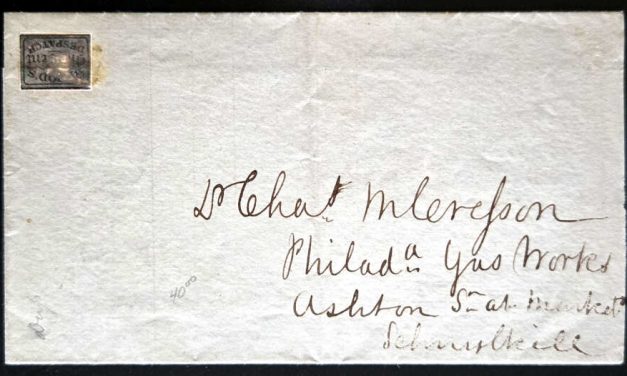 DESPATCH
D'S
Dr Chas M Cresson
Philada Gas Works
Ashton St at Market
Schuylkill
40 00